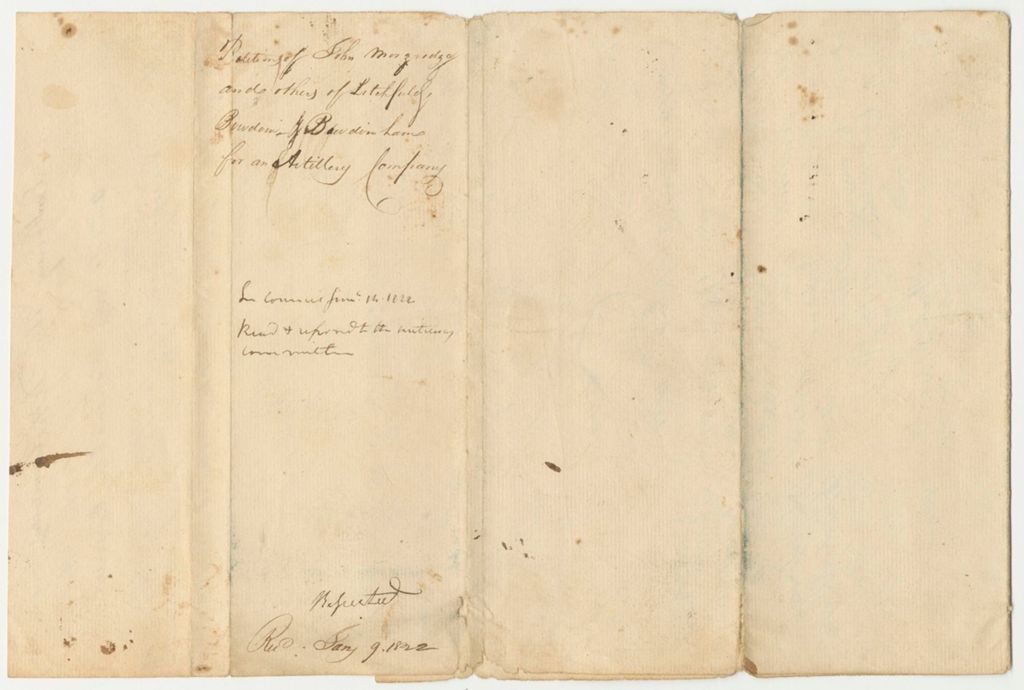 Petition of John Mosgrodge
and others of Litchfield
Bowdoin & Bowdoinham
for an Artillery Company
In Council Jany. 14. 1822
Read & referred to the military
committee
Reported
Recd. Jany 9. 1822